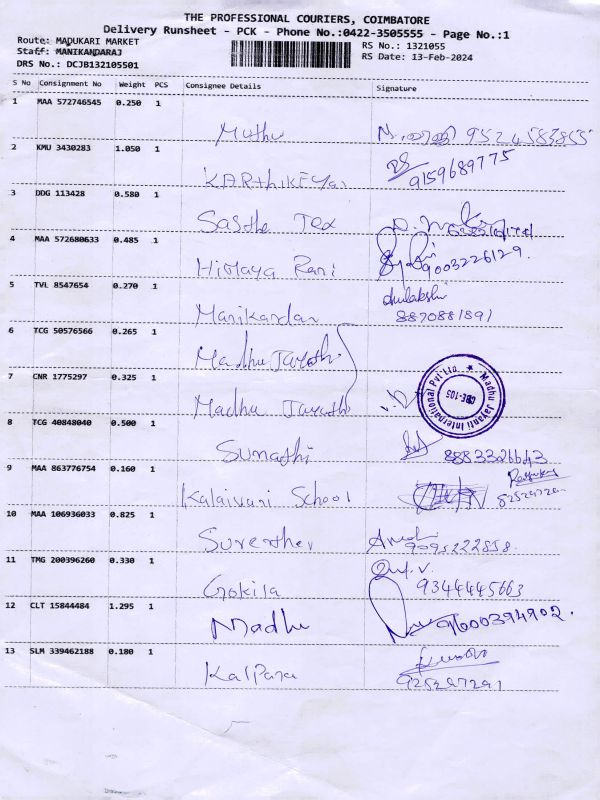 THE PROFESSIONAL COURIERS, COIMBATORE
Delivery Runsheet - PCK - Phone No.:0422-3505555 - Page No.:1
Route: MADUKARI MARKET
Staff: MANIKANDARAJ
DRS No.: DCJB132105501
RS No.: 1321055
RS Date: 13-Feb-2024
S No Consignment No Weight PCS Consignee Details Signature
1 MAA 572746545 0.250 1
Muthu 9524583855
2 KMU 3430283 1.050 1
KARthiKEYan 9159689775
3 DDG 113428 0.580 1
Sasthe Tex
4 MAA 572680633 0.485 1
Himaya Rani 9003226129.
5 TVL 8547654 0.270 1
Manikandan 8870881891
6 TCG 50576566 0.265 1
Madhu Jayathi
7 CNR 1775297 0.325 1
Madhu Jayathi
Madhu Jayanti International Pvt. Ltd. ★
CBE-105
8 TCG 40848040 0.500 1
Sumathi 8883326643
9 MAA 863776754 0.160 1
Kalaivani School
10 MAA 106936033 0.825 1
Surenther 9095222858.
11 TMG 200396260 0.330 1
Gokila 9344445663
12 CLT 15844484 1.295 1
Madhu 9600394902.
13 SLM 339462188 0.180 1
Kalpana 9252897291